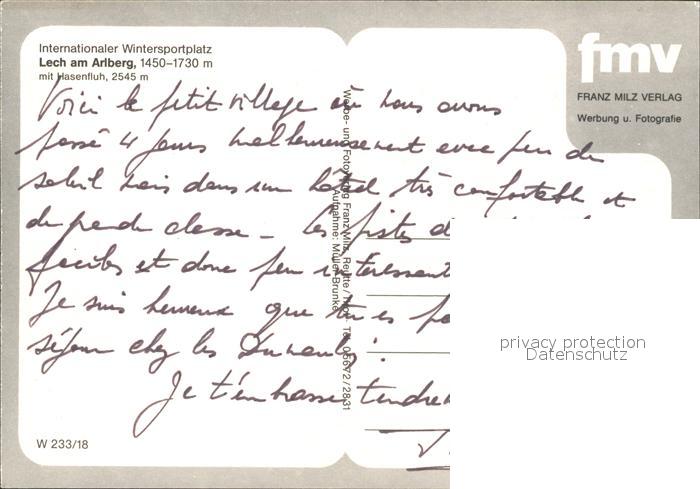 Internationaler Wintersportplatz
Lech am Arlberg, 1450–1730 m
mit Hasenfluh, 2545 m
fmv
FRANZ MILZ VERLAG
Werbung u. Fotografie
Voici le petit village où nous avons
passé 4 jours malheureusement avec peu de
soleil mais dans un hôtel très confortable et
de grande classe – les pistes
faciles et donc peu intéressant
Je suis heureux que tu es
séjour chez les
Je t'embrasse tendre
Werbe- und Fotoverlag Franz Milz, Reutte/Tirol, Tel. 05672/2831
Aufnahme: Müller-Brunke
W 233/18
privacy protection
Datenschutz